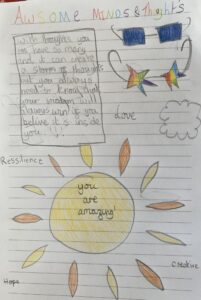 Awsome Minds & Thoughts
With thoughts you
can have so many
and it can create
a storm of thoughts
but you always
need to know that
your wisdom will
always win if you
believe it is inside
you !!!
Love
Ressilience
you
are
amazing!
Creative
Hope